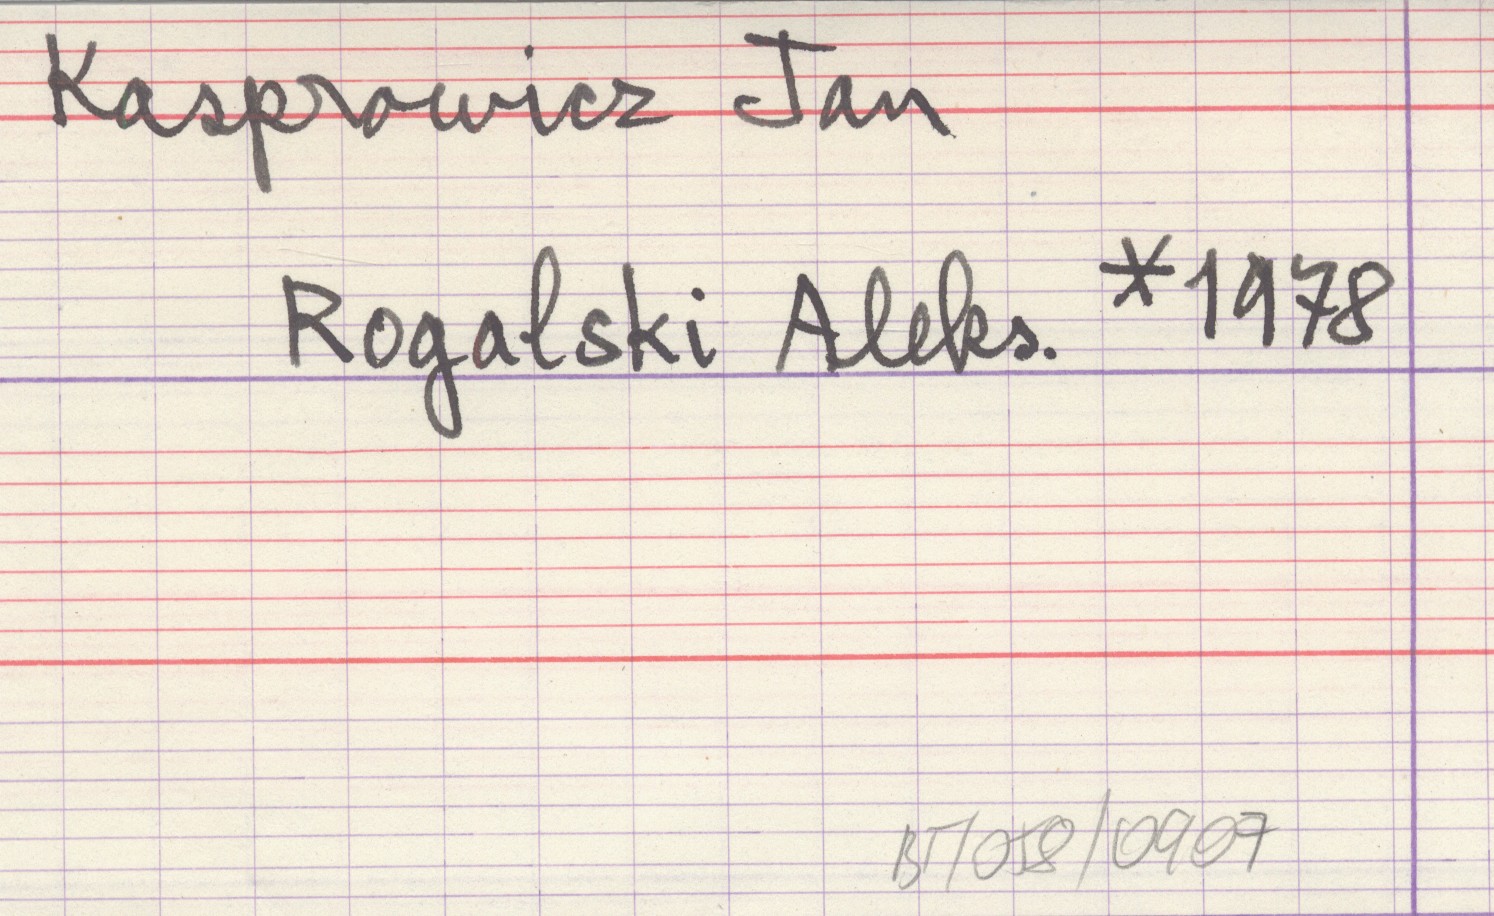 Kasprowicz Jan
Rogalski Aleks. *1978
BT/058/0907